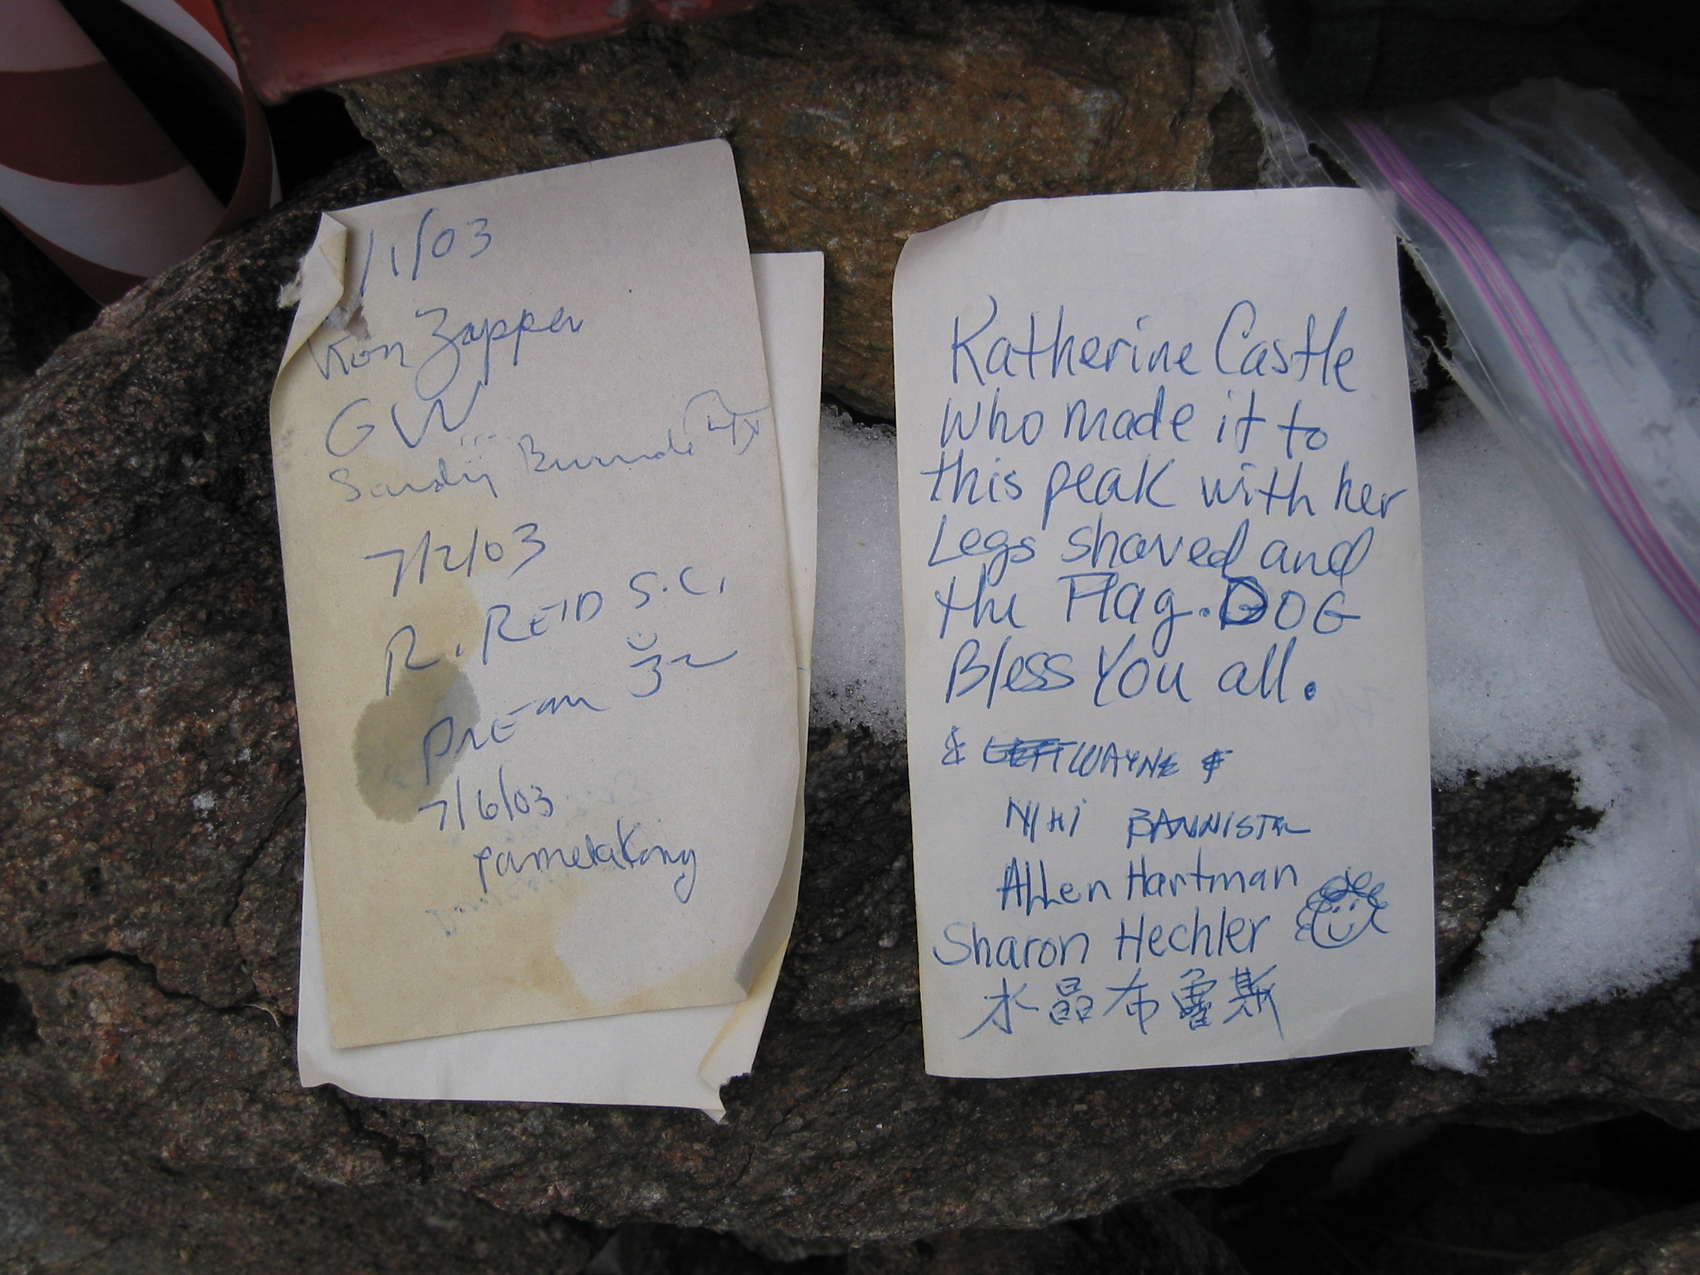 /1/03
Ron Zapper
GW
Sandy
7/2/03
R. REID S.C.
7/6/03
Pamela Kong
Katherine Castle
who made it to
this peak with her
Legs shaved and
the Flag. DOG
Bless You all.
& WAYNE &
BANNISTER
Allen Hartman
Sharon Hechler
水晶布雷斯